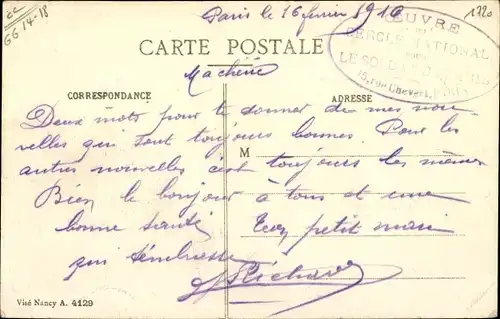 cc
GG 14-18
Paris le 16 février 1916
1220
ŒUVRE
DU
CERCLE NATIONAL
POUR
LE SOLDAT DE PARIS
15, rue Chevert, PARIS
CARTE POSTALE
Ma chérie
CORRESPONDANCE
ADRESSE
Deux mots pour te donner de mes nou
velles qui sont toujours bonnes. Pour les
M
autres nouvelles c'est toujours les mêmes
Bien le bonjour à tous et une
bonne santé
Ton petit mari
qui t'embrasse
Richard
Visé Nancy A. 4129